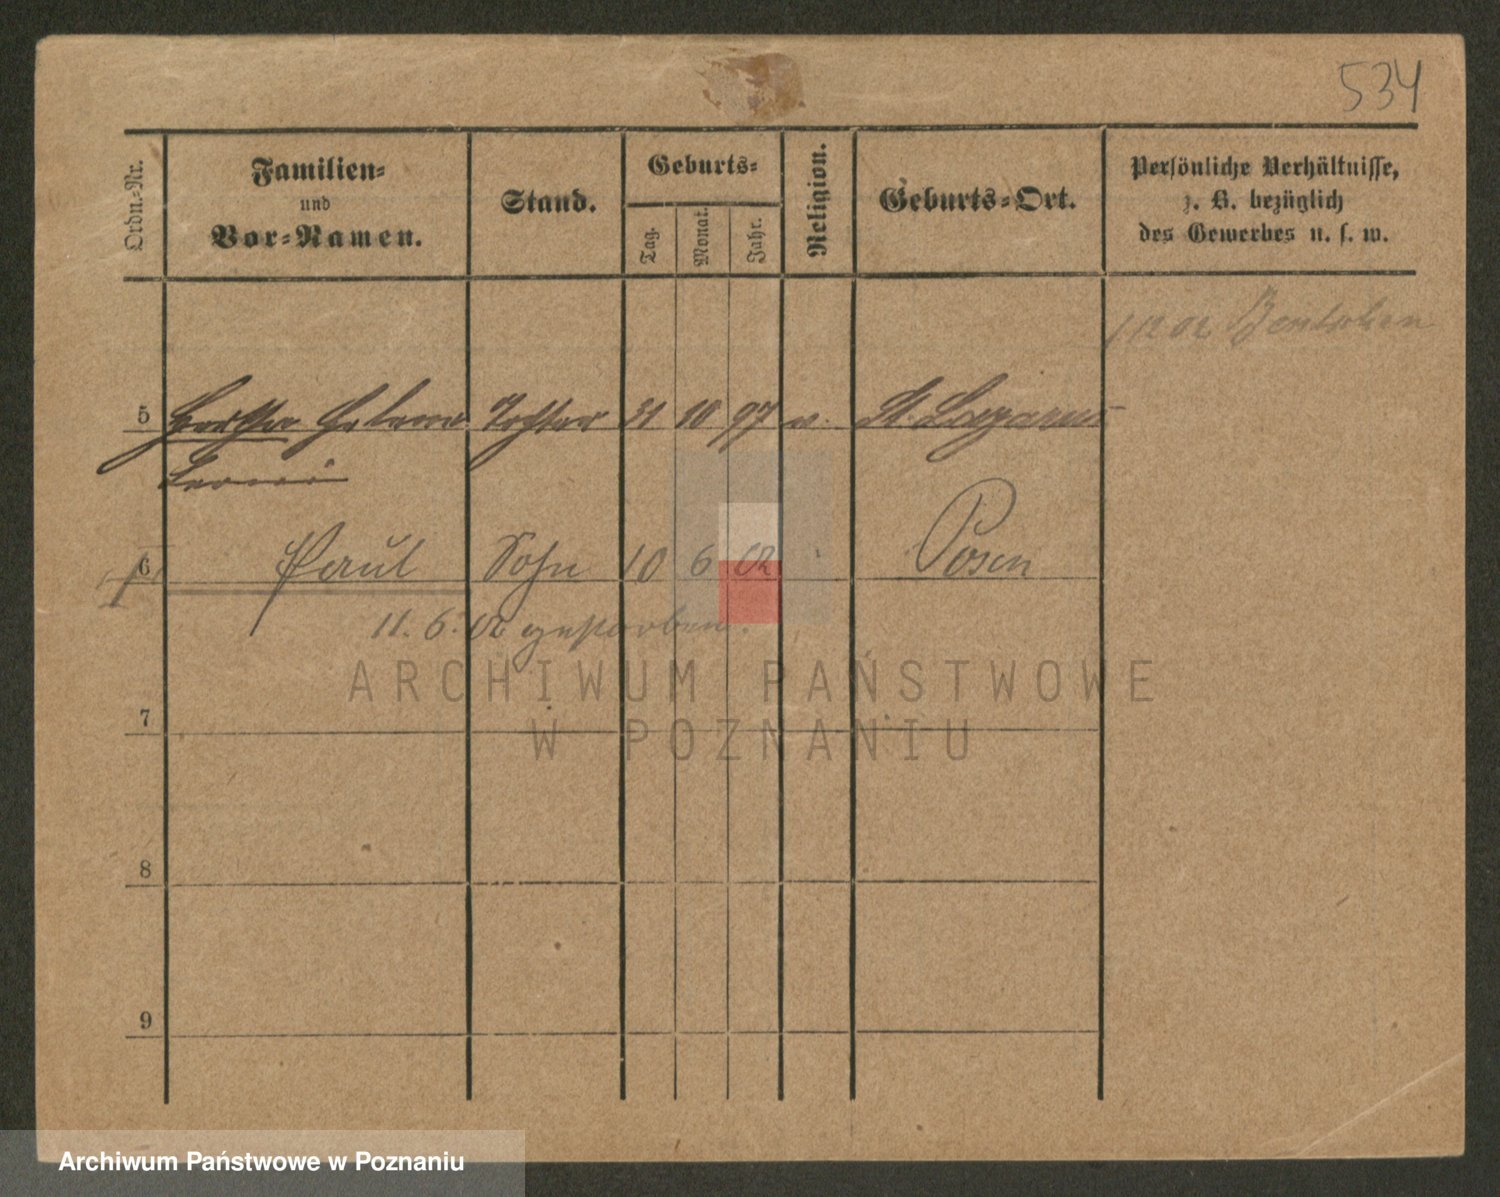 534
Ordn.-Nr. Familien- und Vor-Namen. Stand. Geburts- Tag. Monat. Jahr. Religion. Geburts-Ort. Persönliche Verhältnisse, z. B. bezüglich des Gewerbes u. s. w.
1 12 02 Bentschen
5 Helene Tochter 31 10 97 St. Lazarus
6 Paul Sohn 10 6 02 Posen
11. 6. 02 gestorben.
7
8
9
ARCHIWUM PAŃSTWOWE
W POZNANIU
Archiwum Państwowe w Poznaniu